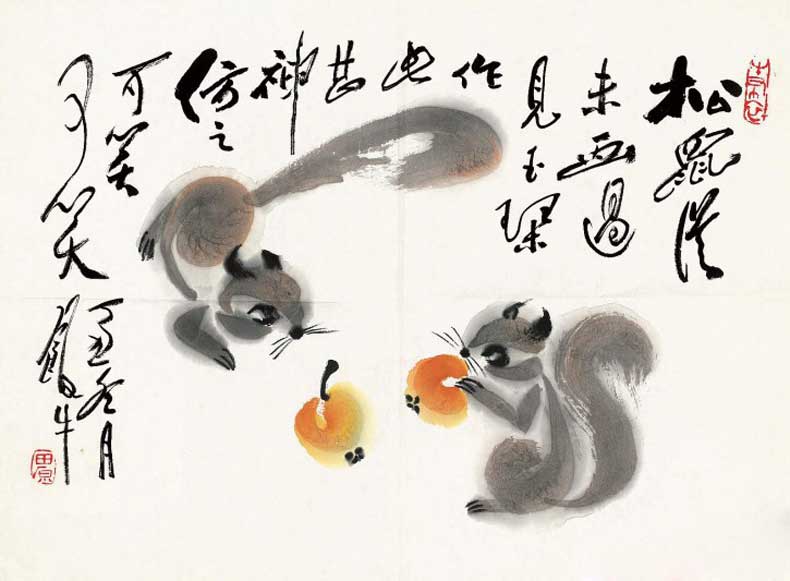 松鼠從
未画過
見玉
作
此
甚
神
仿之
可笑
可笑
丁冬月
飯牛
田原